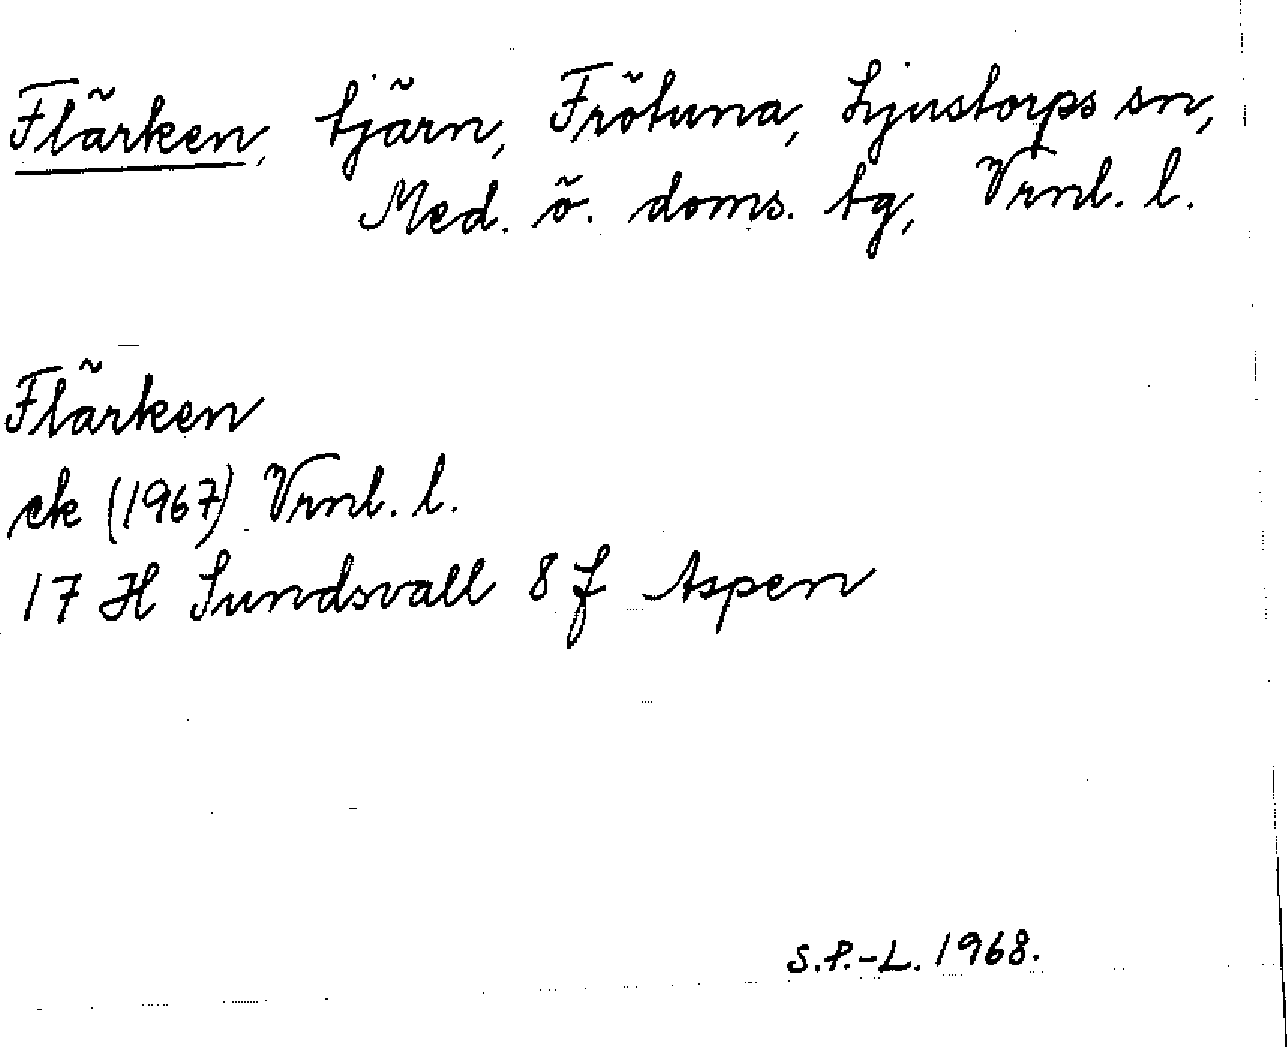 Flärken, tjärn, Frötuna, Ljustorps sn,
Med. ö. doms. tg, Vrnl. l.
Flärken
ek (1967) Vrnl. l.
17 H Sundsvall 8 f Aspen
S.P.-L. 1968.